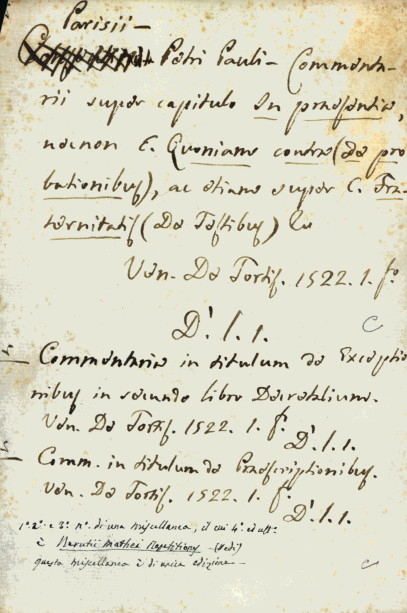 Parisii—
Petri Pauli— Commenta-
rii super capitulo In praesentia,
necnon C. Quoniam contra (De pro
bationibus), ac etiam super C. Fra-
ternitatis (De Testibus)
Ven. De Tortis. 1522. 1. fº
D'. l. 1.
C
Commentaria in titulum de Exceptio
nibus in secundo libro Decretalium.
Ven. De Tortis. 1522. 1. fº.
D'. l. 1.
Comm. in titulum de Praescriptionibus.
Ven. De Tortis. 1522. 1. fº.
D'. l. 1.
1º 2º e 3º nº. di una miscellanea, il cui 4º ed ultº
è Barutii Mathei Repetitiones — (Vedi)
questa miscellanea è di unica edizione —
C